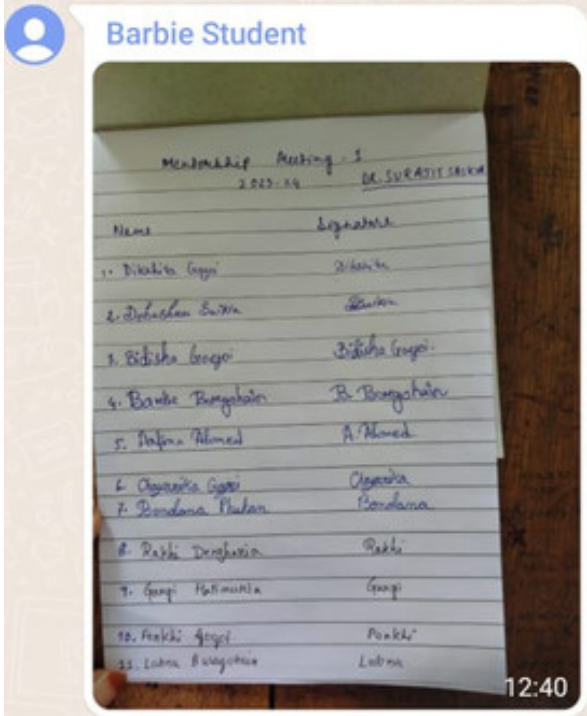 Barbie Student
Mentorship Meeting - 1
2023-24 DR. SURAJIT SAIKIA
Name Signature
1. Dikshita Gogoi Dikshita
2. Debashree Saikia Saikia
3. Bidisha Gogoi Bidisha Gogoi.
4. Barbie Borgohain B. Borgohain
5. Ahmed A. Ahmed
6. Chayanika Gogoi Chayanika
7. Bondana Phukan Bondana
8. Rakhi Rakhi
9. Gangi Hatimuria Gangi
10. Pankhi Gogoi Pankhi
11. Labna Buragohain Labna
12:40